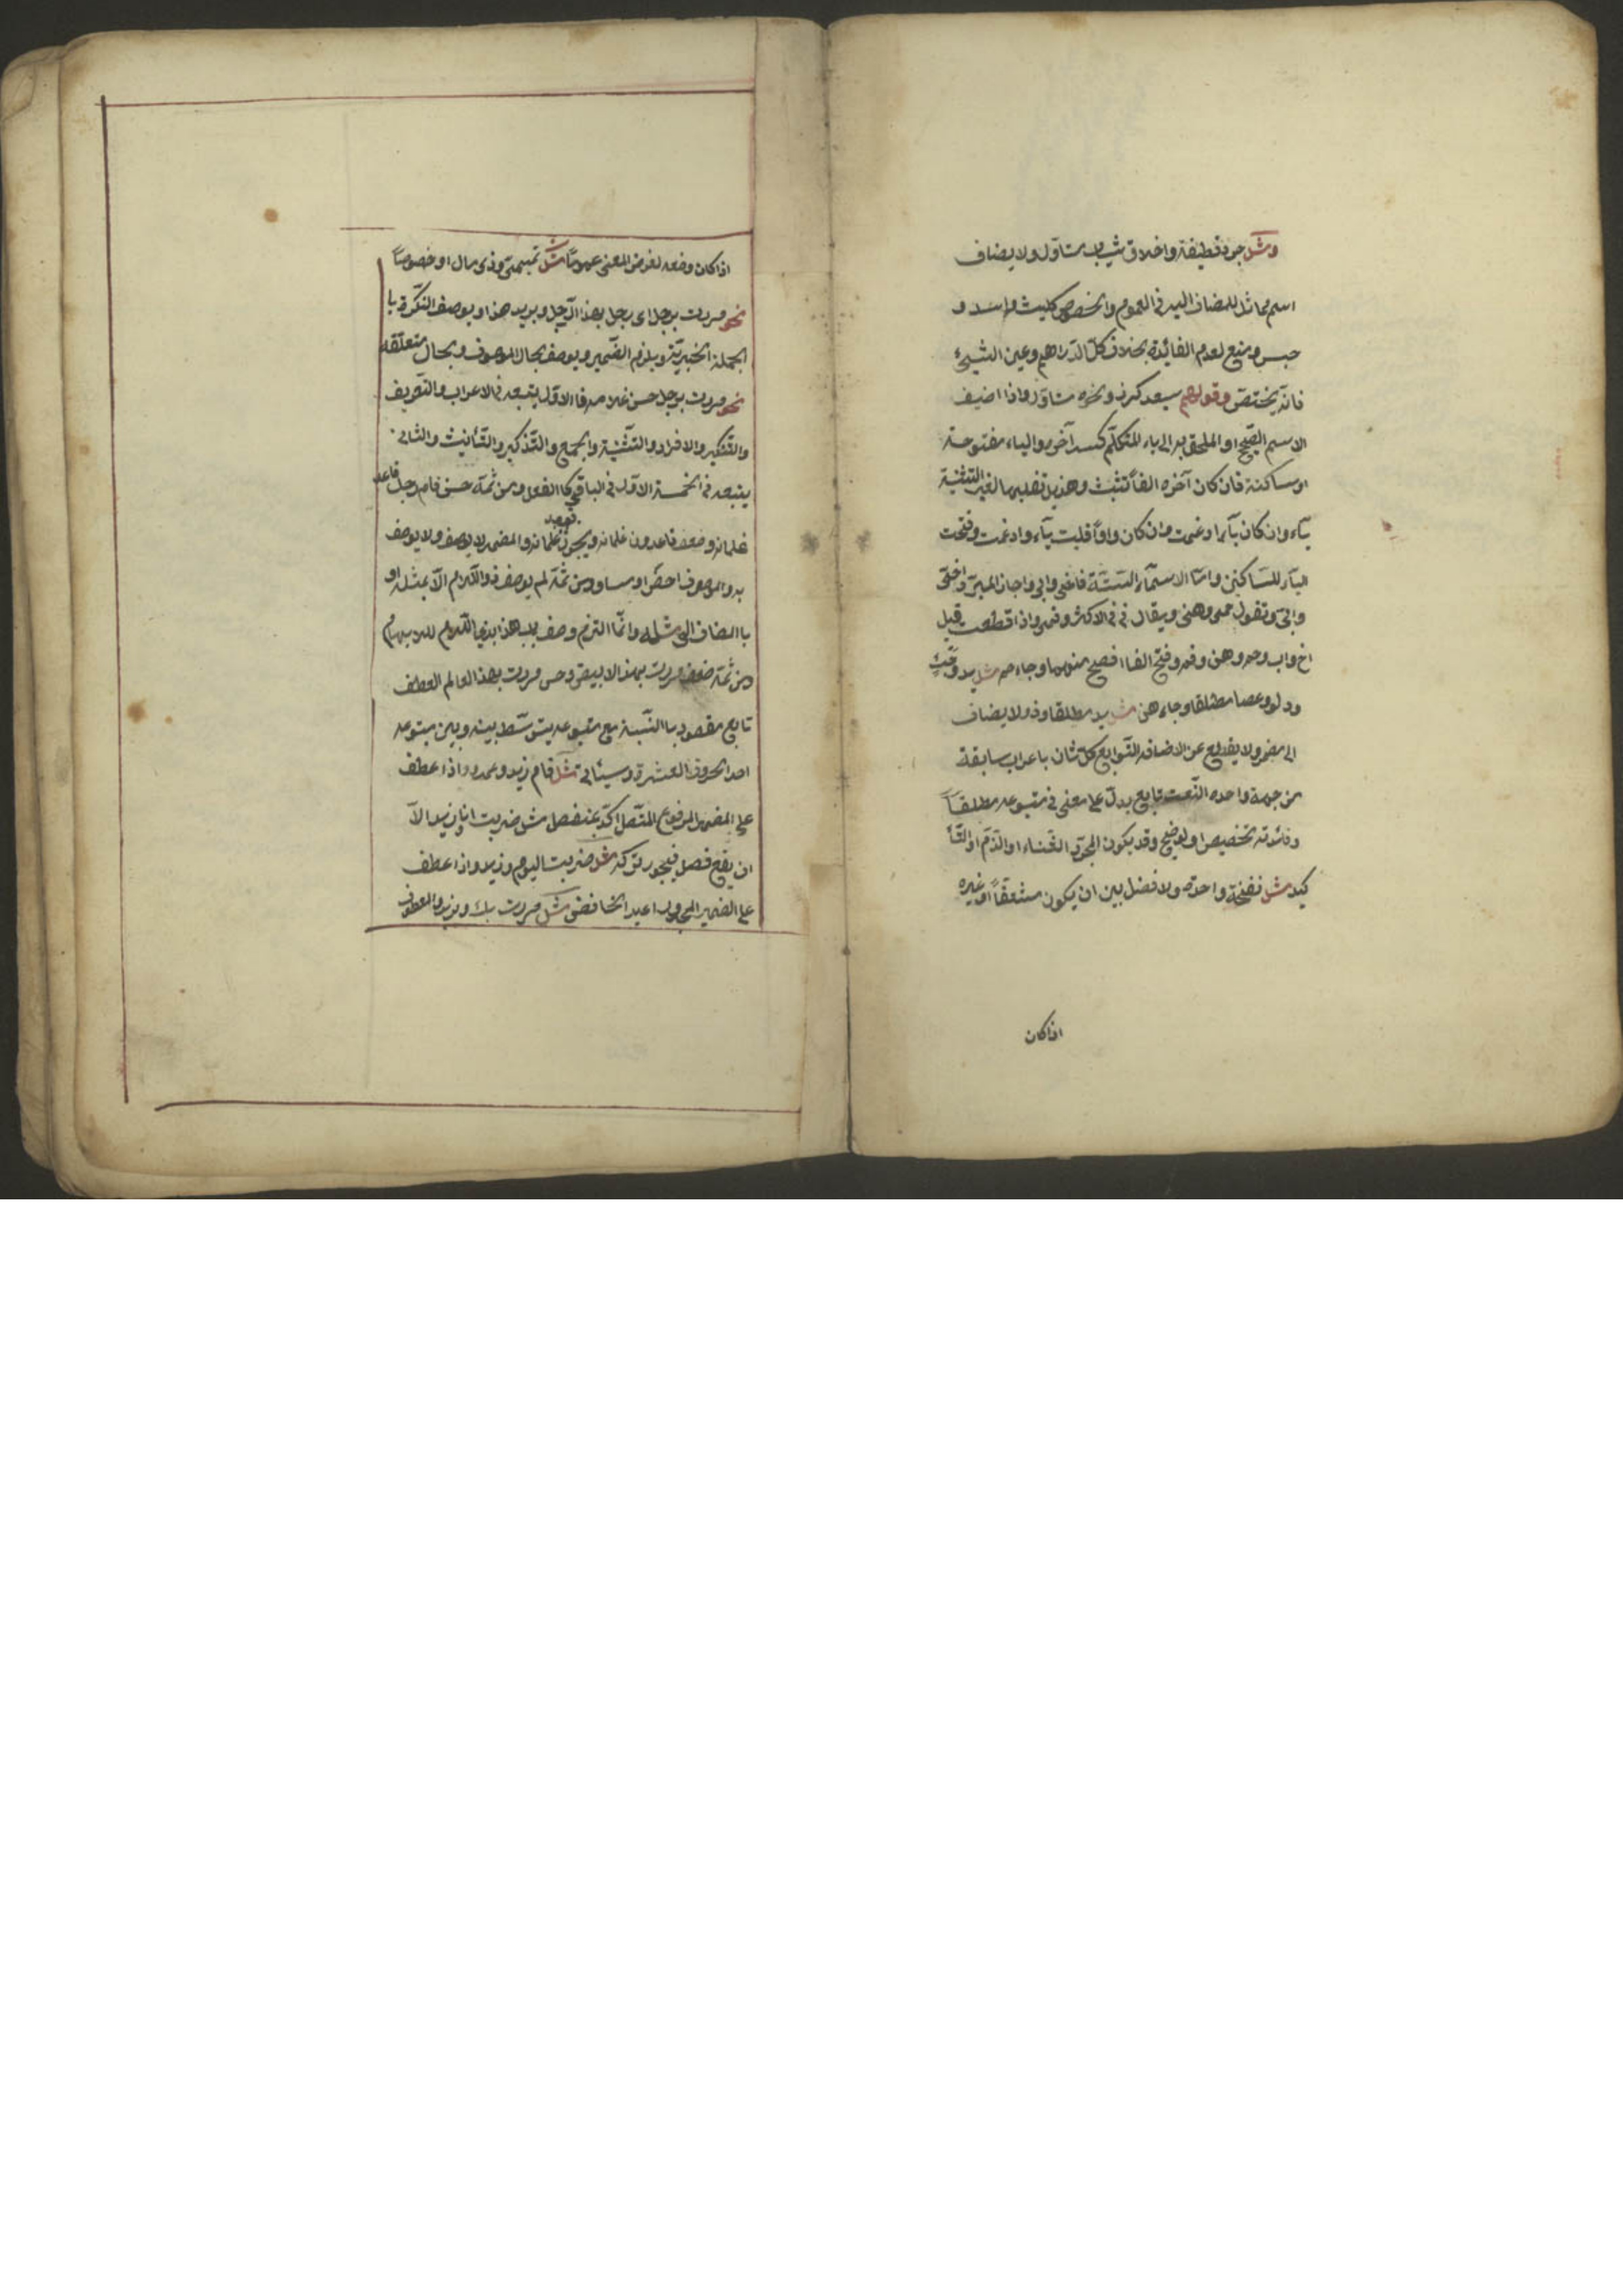 ومثل جرد قطيفة واخلاق ثياب متاول ولا يضاف
اسم مماثل للمضاف اليه فى العموم والخصوص كليث واسد و
حبس ومنع لعدم الفائدة بخلاف كل الدراهم وعين الشيئ
فانه يختص وقولهم سعد كرز ونحوه متاول واذا اضيف
الاسم الصحيح او الملحق به الى ياء المتكلم كسد آخره والياء مفتوحة
او ساكنة فان كان آخره الفا تثبت وهذيل تقلبها لغير التثنية
ياء وان كان ياء ادغمت وان كان واوا قلبت ياء وادغمت وفتحت
الياء للساكنين واما الاسماء الستة فاخى وابى واجاز المبرد اخىّ
وابىّ وتقول حمى وهنى ويقال فىّ فى الاكثر وفمى واذا قطعت قيل
اخ واب وحم وهن وفم وفتح الفاا فصح منهما وجاء حم مثل يد وخبئ
ودلو وعصا مطلقا وجاء هن مثل يد مطلقا وذو لا يضاف
الى مضمر ولا يقطع عن الاضافة التوابع كل ثان باعراب سابقة
من جهة واحده النعت تابع يدل على معنى فى متبوعه مطلقا
وفائدته تخصيص او توضيح وقد يكون لمجرد الثناء او الذم او التأ
كيد مثل نفخة واحدة ولا فضل بين ان يكون مشتقا او غيره
اذا كان
اذا كان وضعه لغرض المعنى عموما مثل تميمى وذى مال او خصوصا
نحو مررت برجل اى رجل بهذا الرجل وبزيد هذا ويوصف النكرة با
الجملة الخبرية ويلزم الضمير ويوصف بحال الموصوف وبحال متعلقه
نحو مررت برجل حسن غلامه فاالاول يتبعه فى الاعراب والتعريف
والتنكير والافراد والتثنية والجمع والتذكير والتأنيث والثانى
يتبعه فى الخمسة الاول فى الباقى كاالفعل ومن ثمة حسن قام رجل قاعد
غلمانه وضعف قاعدون غلمانه ويجوز قعود غلمانه والمضمر لا يوصف ولا يوصف
به والموصوف اخص او مساو ومن ثمة لم يوصف ذو اللام الا بمثله او
باالمضاف الى مثله وانما التزم وصف باب هذا بذى اللام للابهام
ومن ثمة ضعف مررت بهذا الابيض وحسن مررت بهذا العالم العطف
تابع مقصود باالنسبة مع متبوعه يتوسط بينه وبين متبوعه
احد الحروف العشرة وسيئاتى مثل قام زيد وعمرو واذا عطف
على المضمر المرفوع المتصل اكد بمنفصل مثل ضربت انا وزيد الا
ان يقع فصل فيجوز تركه مثل ضربت اليوم وزيد واذا عطف
على الضمير المجرور اعيد الخافض مثل مررت بك وبزيد والمعطوف